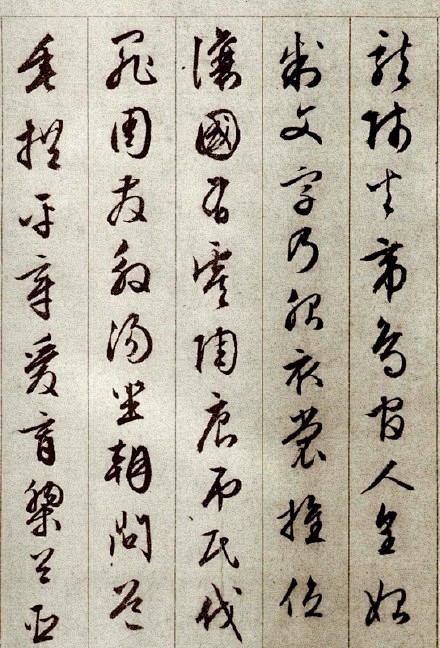 龍師火帝鳥官人皇始
制文字乃服衣裳推位
讓國有虞陶唐吊民伐
罪周發殷湯坐朝問道
垂拱平章愛育黎首臣